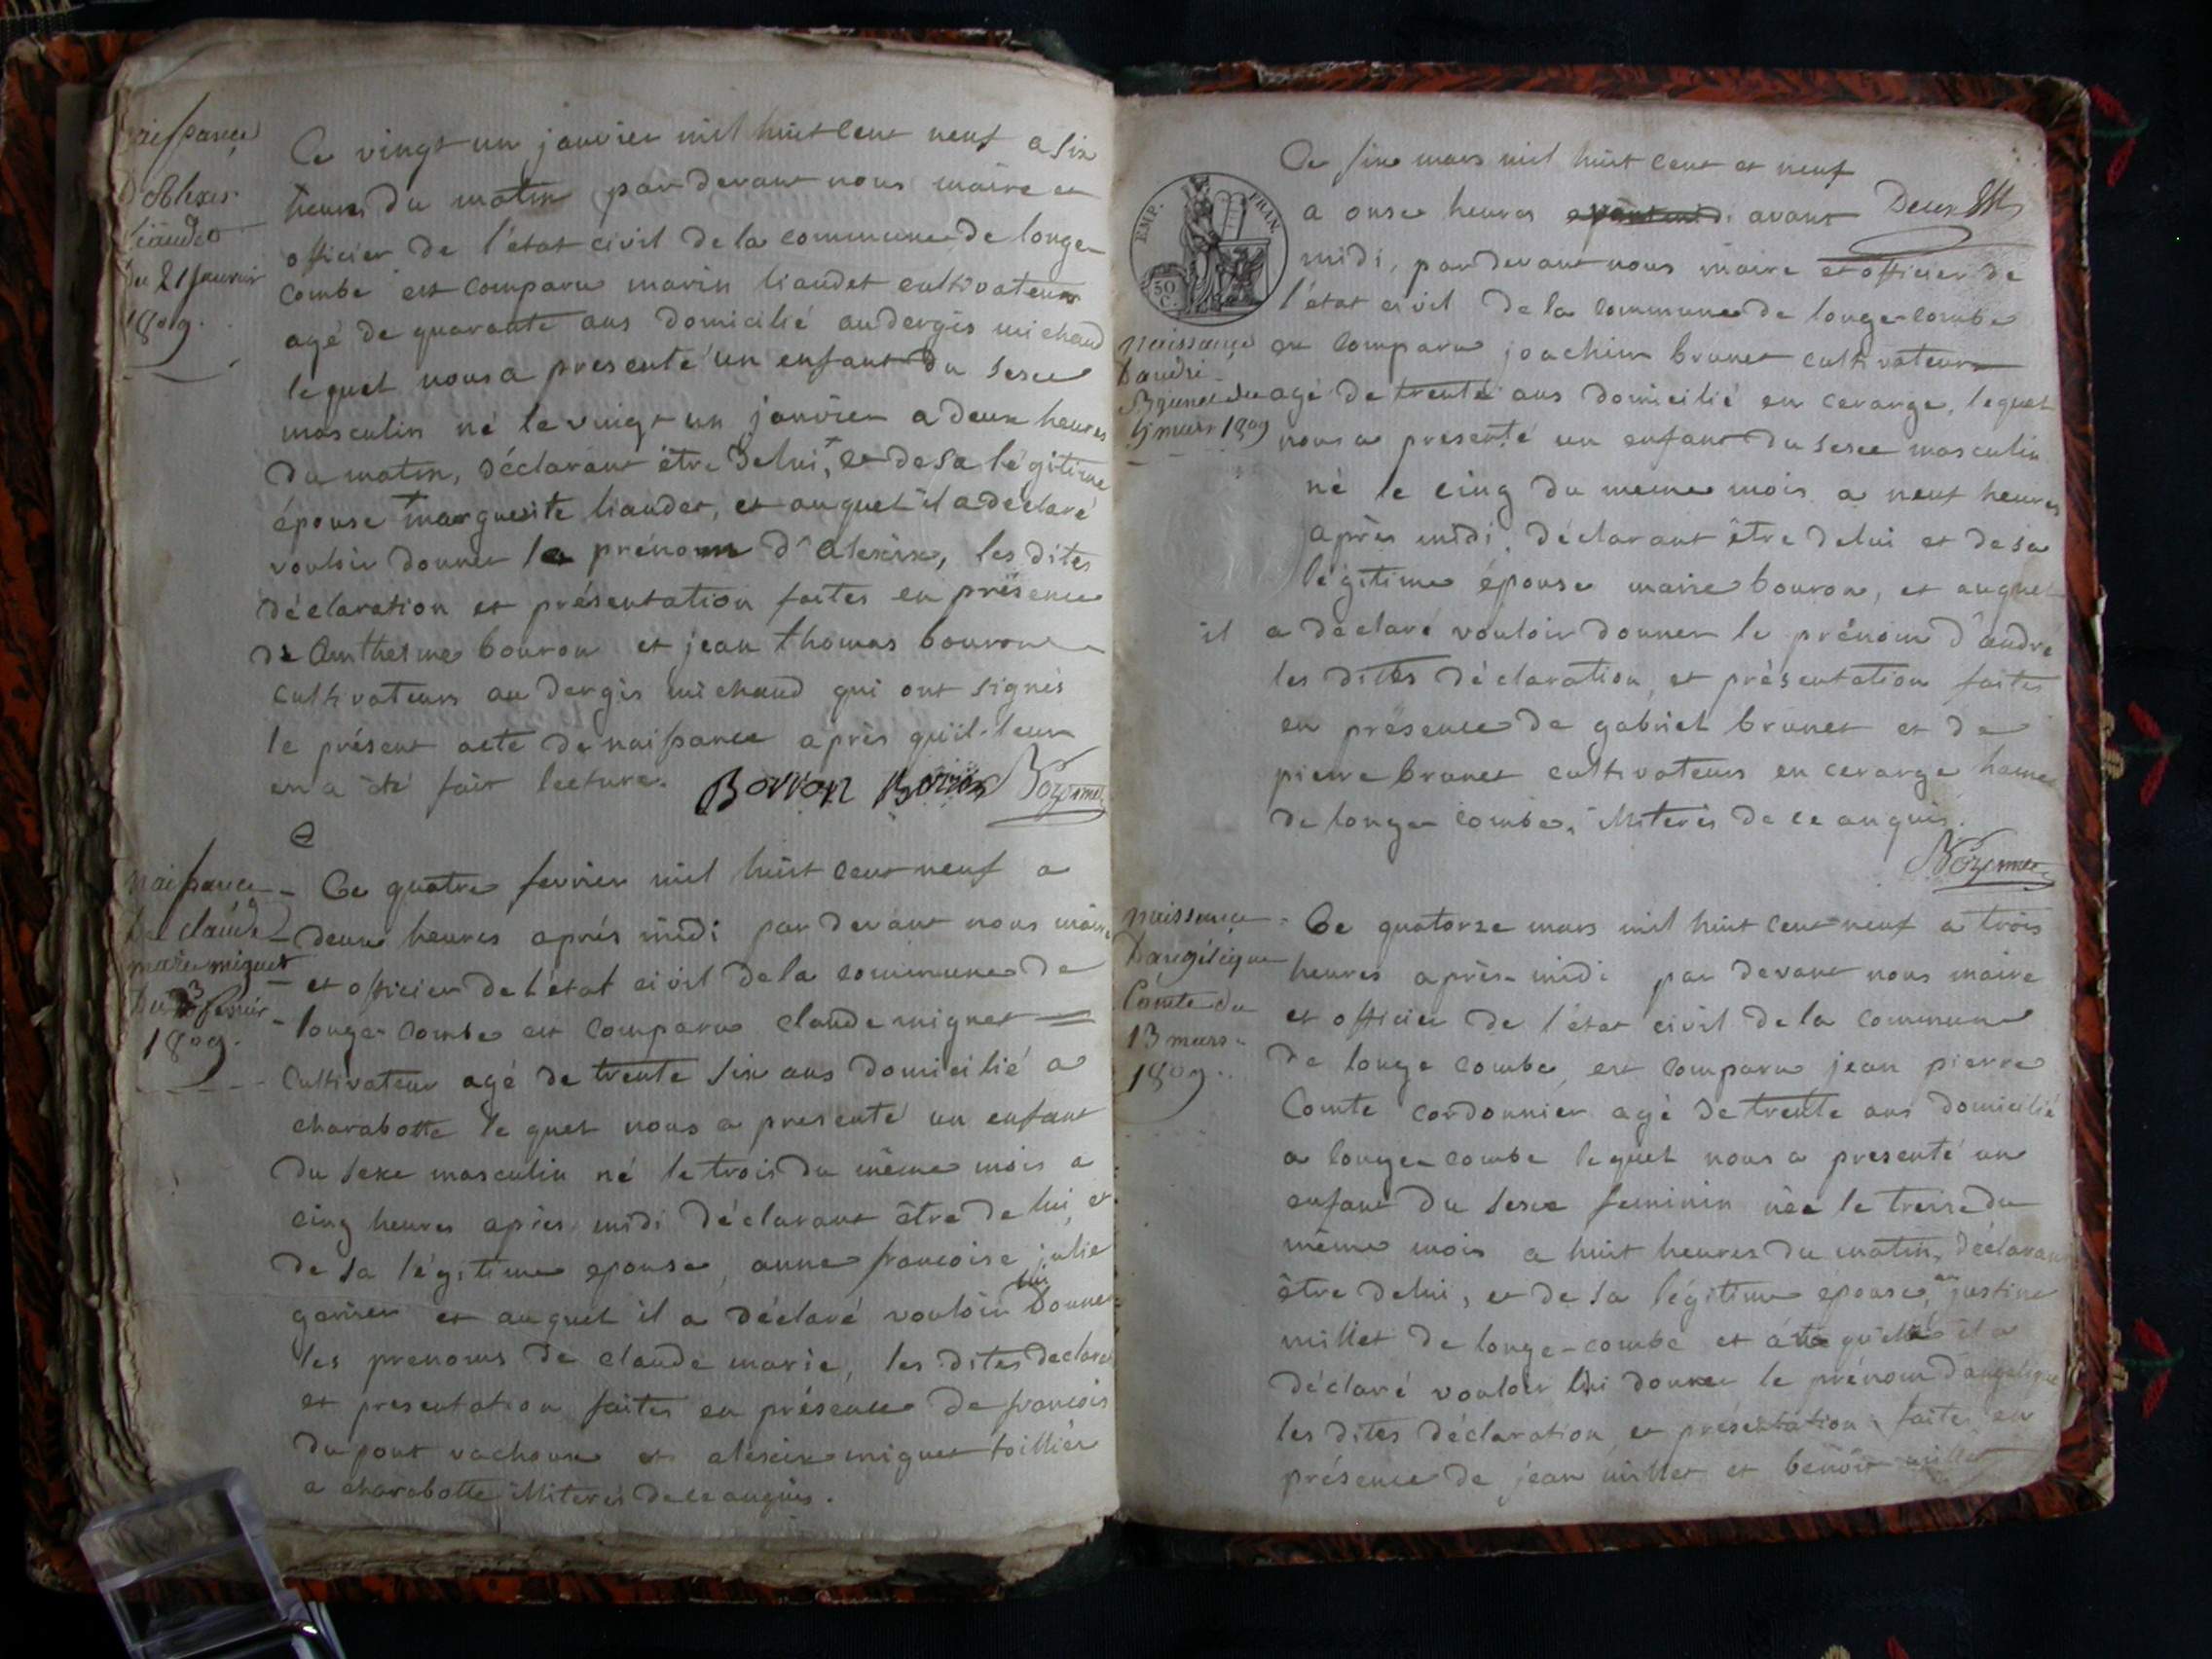 naissance
D'Alexis
Liaudet
du 21 janvier
1809.
Ce vingt un janvier mil huit cent neuf a six
heures du matin par devant nous maire et
officier de l'état civil de la commune de longe
combe est comparu marin liaudet cultivateur
agé de quarante ans domicilié au dergis michaud
lequel nous a presenté un enfant du sexe
masculin né le vingt un janvier a deux heures
du matin, déclarant être de lui, et de sa légitime
épouse marguerite liaudet, et auquel il a déclaré
vouloir donner le prénom d'alexix, les dites
déclaration et présentation faites en présence
de Anthelme bouron et jean thomas bouron
cultivateurs au dergis michaud qui ont signés
le présent acte de naissance après qu'il leur
en a été fait lecture. Borron Borron
naissance
De claude
marie miguet
Du 3 fevrier
1809.
Ce quatre fevrier mil huit cent neuf a
deux heures après midi par devant nous maire
et officier de l'état civil de la commune de
longe combe est comparu claude miguet
cultivateur agé de trente six ans domicilié a
charabotte le quel nous a presenté un enfant
du sexe masculin né le trois du même mois a
cinq heures après midi déclarant être de lui, et
de sa légitime epouse, anne francoise julie
garnier et auquel il a déclaré vouloir lui donner
les prenoms de claude marie, les dites declarat
et presentation faites en présence de francois
du pont vachoux et alexix miguet toillier
a charabotte illiterés de ce anquis.
EMP. FRAN.
50 C.
naissance
D'andré
Brunet du
5 mars 1809
Ce six mars mil huit cent et neuf
a onse heures avant
midi, par devant nous maire et officier de
l'état civil de la commune de longe-combe
est comparu joachim brunet cultivateur
agé de trente ans domicilié en cerarge, lequel
nous a presenté un enfant du sexe masculin
né le cinq du meme mois a neuf heures
après midi, déclarant être de lui et de sa
légitime épouse marie bouron, et auquel
il a déclaré vouloir donner le prénom d'andré
les dites déclaration, et présentation faites
en présence de gabriel brunet et de
pierre brunet cultivateurs en cerarge hameau
de longe combe, illiterés de ce anquis.
naissance
D'angélique
Comte du
13 mars
1809.
Ce quatorze mars mil huit cent neuf a trois
heures après-midi par devant nous maire
et officier de l'état civil de la commune
de longe combe, est comparu jean pierre
Comte cordonnier agé de trente ans domicilié
a longe combe lequel nous a presenté un
enfant du sexe feminin née le treise du
même mois a huit heures du matin, déclarant
être de lui, et de sa légitime epouse, justine
millet de longe-combe et a la quelle il a
déclaré vouloir lui donner le prénom d'angelique
les dites déclaration, et présentation faites en
présence de jean millet et benoit millet